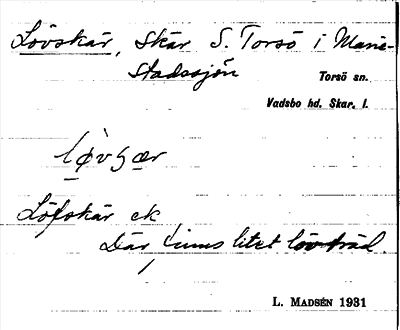 Lövskär, skär S. Torsö i Marie-
stadssjön
Torsö sn.
Vadsbo hd. Skar. l.
Löfskär ek
Där finns litet lövträd.
L. MADSÉN 1931